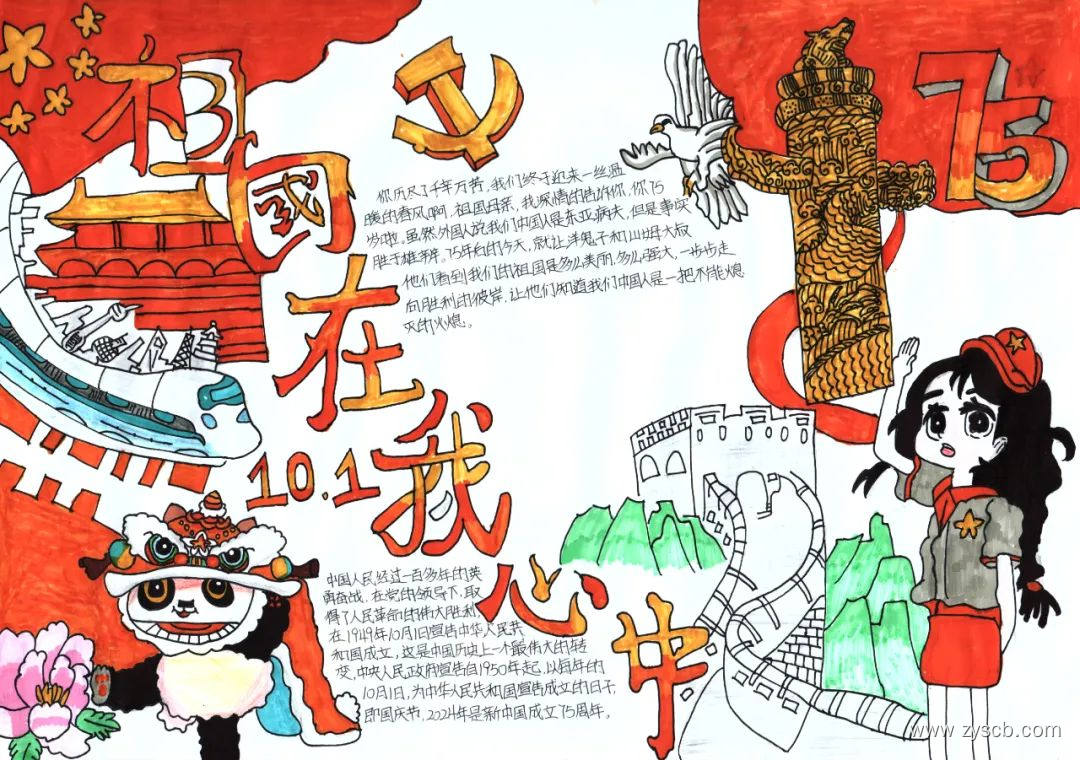 祖国在我心中
75
10.1
你历尽了千年万苦,我们终于迎来一丝温
暖的春风啊,祖国母亲,我深情的告诉你,你75
岁啦。虽然外国人说我们中国人是东亚病夫,但是事实
胜于雄辩。75年后的今天,就让洋鬼子和山姆大叔
他们看到我们的祖国是多么美丽,多么强大,一步步走
向胜利的彼岸,让他们知道我们中国人是一把不能熄
灭的火熄。
中国人民,经过一百多年的英
勇奋战,在党的领导下,取
得了人民革命的伟大胜利,
在1949年10月1日宣告中华人民共
和国成立,这是中国历史上一个最伟大的转
变,中央人民政府宣告自1950年起,以每年的
10月1日,为中华人民共和国宣告成立的日子,
即国庆节,2024年是新中国成立75周年。
www.zyscb.com